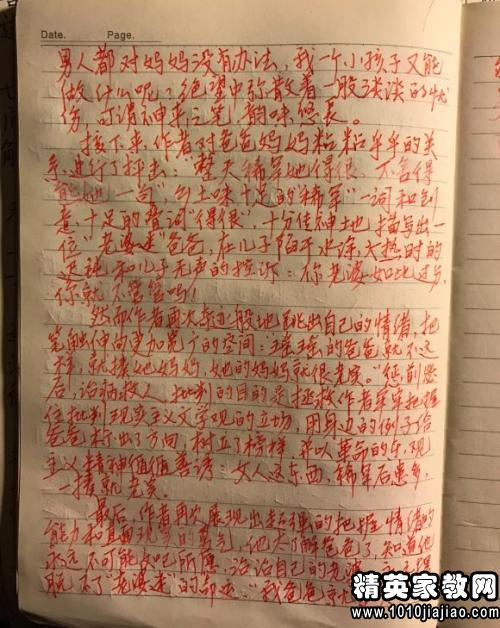 Date.    Page.
男人都对妈妈没有办法，我一个小孩子又能
做什么呢？绝望中弥散着一股淡淡的忧
伤，可谓神来之笔，韵味悠长。
接下来，作者对爸爸妈妈粘粘乎乎的关
系，进行了抨击："整天稀罕她得很，不舍得
她一"，乡土味十足的"稀罕"一词和
意十足的赘词"得很"，十分传神地描写出一
位"老婆迷"爸爸，在儿子陷于水深火热时的
和儿子无声的控诉：你老婆如此过分，
你就不管管吗！
然而作者再次奇迹般地跳出自己的情绪，把
笔触伸向更加宽广的空间：瑶瑶的爸爸就不这
样，就揍她妈妈，她的妈妈就很老实。"惩前毖
后，治病救人，批判的目的是拯救作者牢牢把握
住批判现实主义文学观的立场，用身边的例子给
爸爸标出了方向，树立了榜样，并以革命的乐观
主义精神循循善诱：女人这东西，稀罕后患多，
一揍就老实。
最后，作者再次展现出超强的把握情绪的
能力和直面现实的勇气，他太了解爸爸了，知道他
永远不可能如吧所愿，治治自己的老婆，
脱不了"老婆迷"的命运："我爸爸
精英家教网
www.1010jiajiao.com